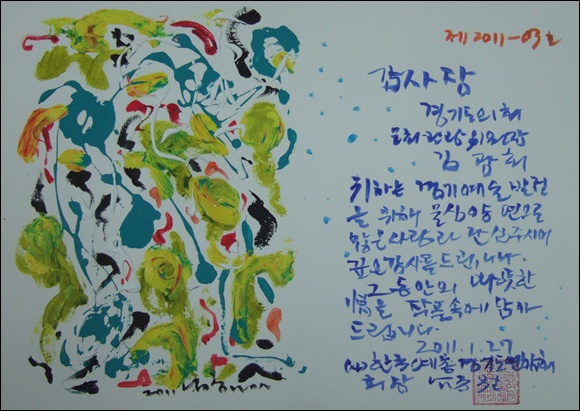 제 2011-03호
감사장
경기도의회
문화관광위원장
김광회
귀하는 경기예술발전
을 위해 물심양면으로
많은 사랑과 관심을 주시어
깊은 감사를 드립니다.
그동안의 따뜻한
情을 작품속에 담아
드립니다.
2011.1.27
(사)한국예총 경기도연합회
회장
2011